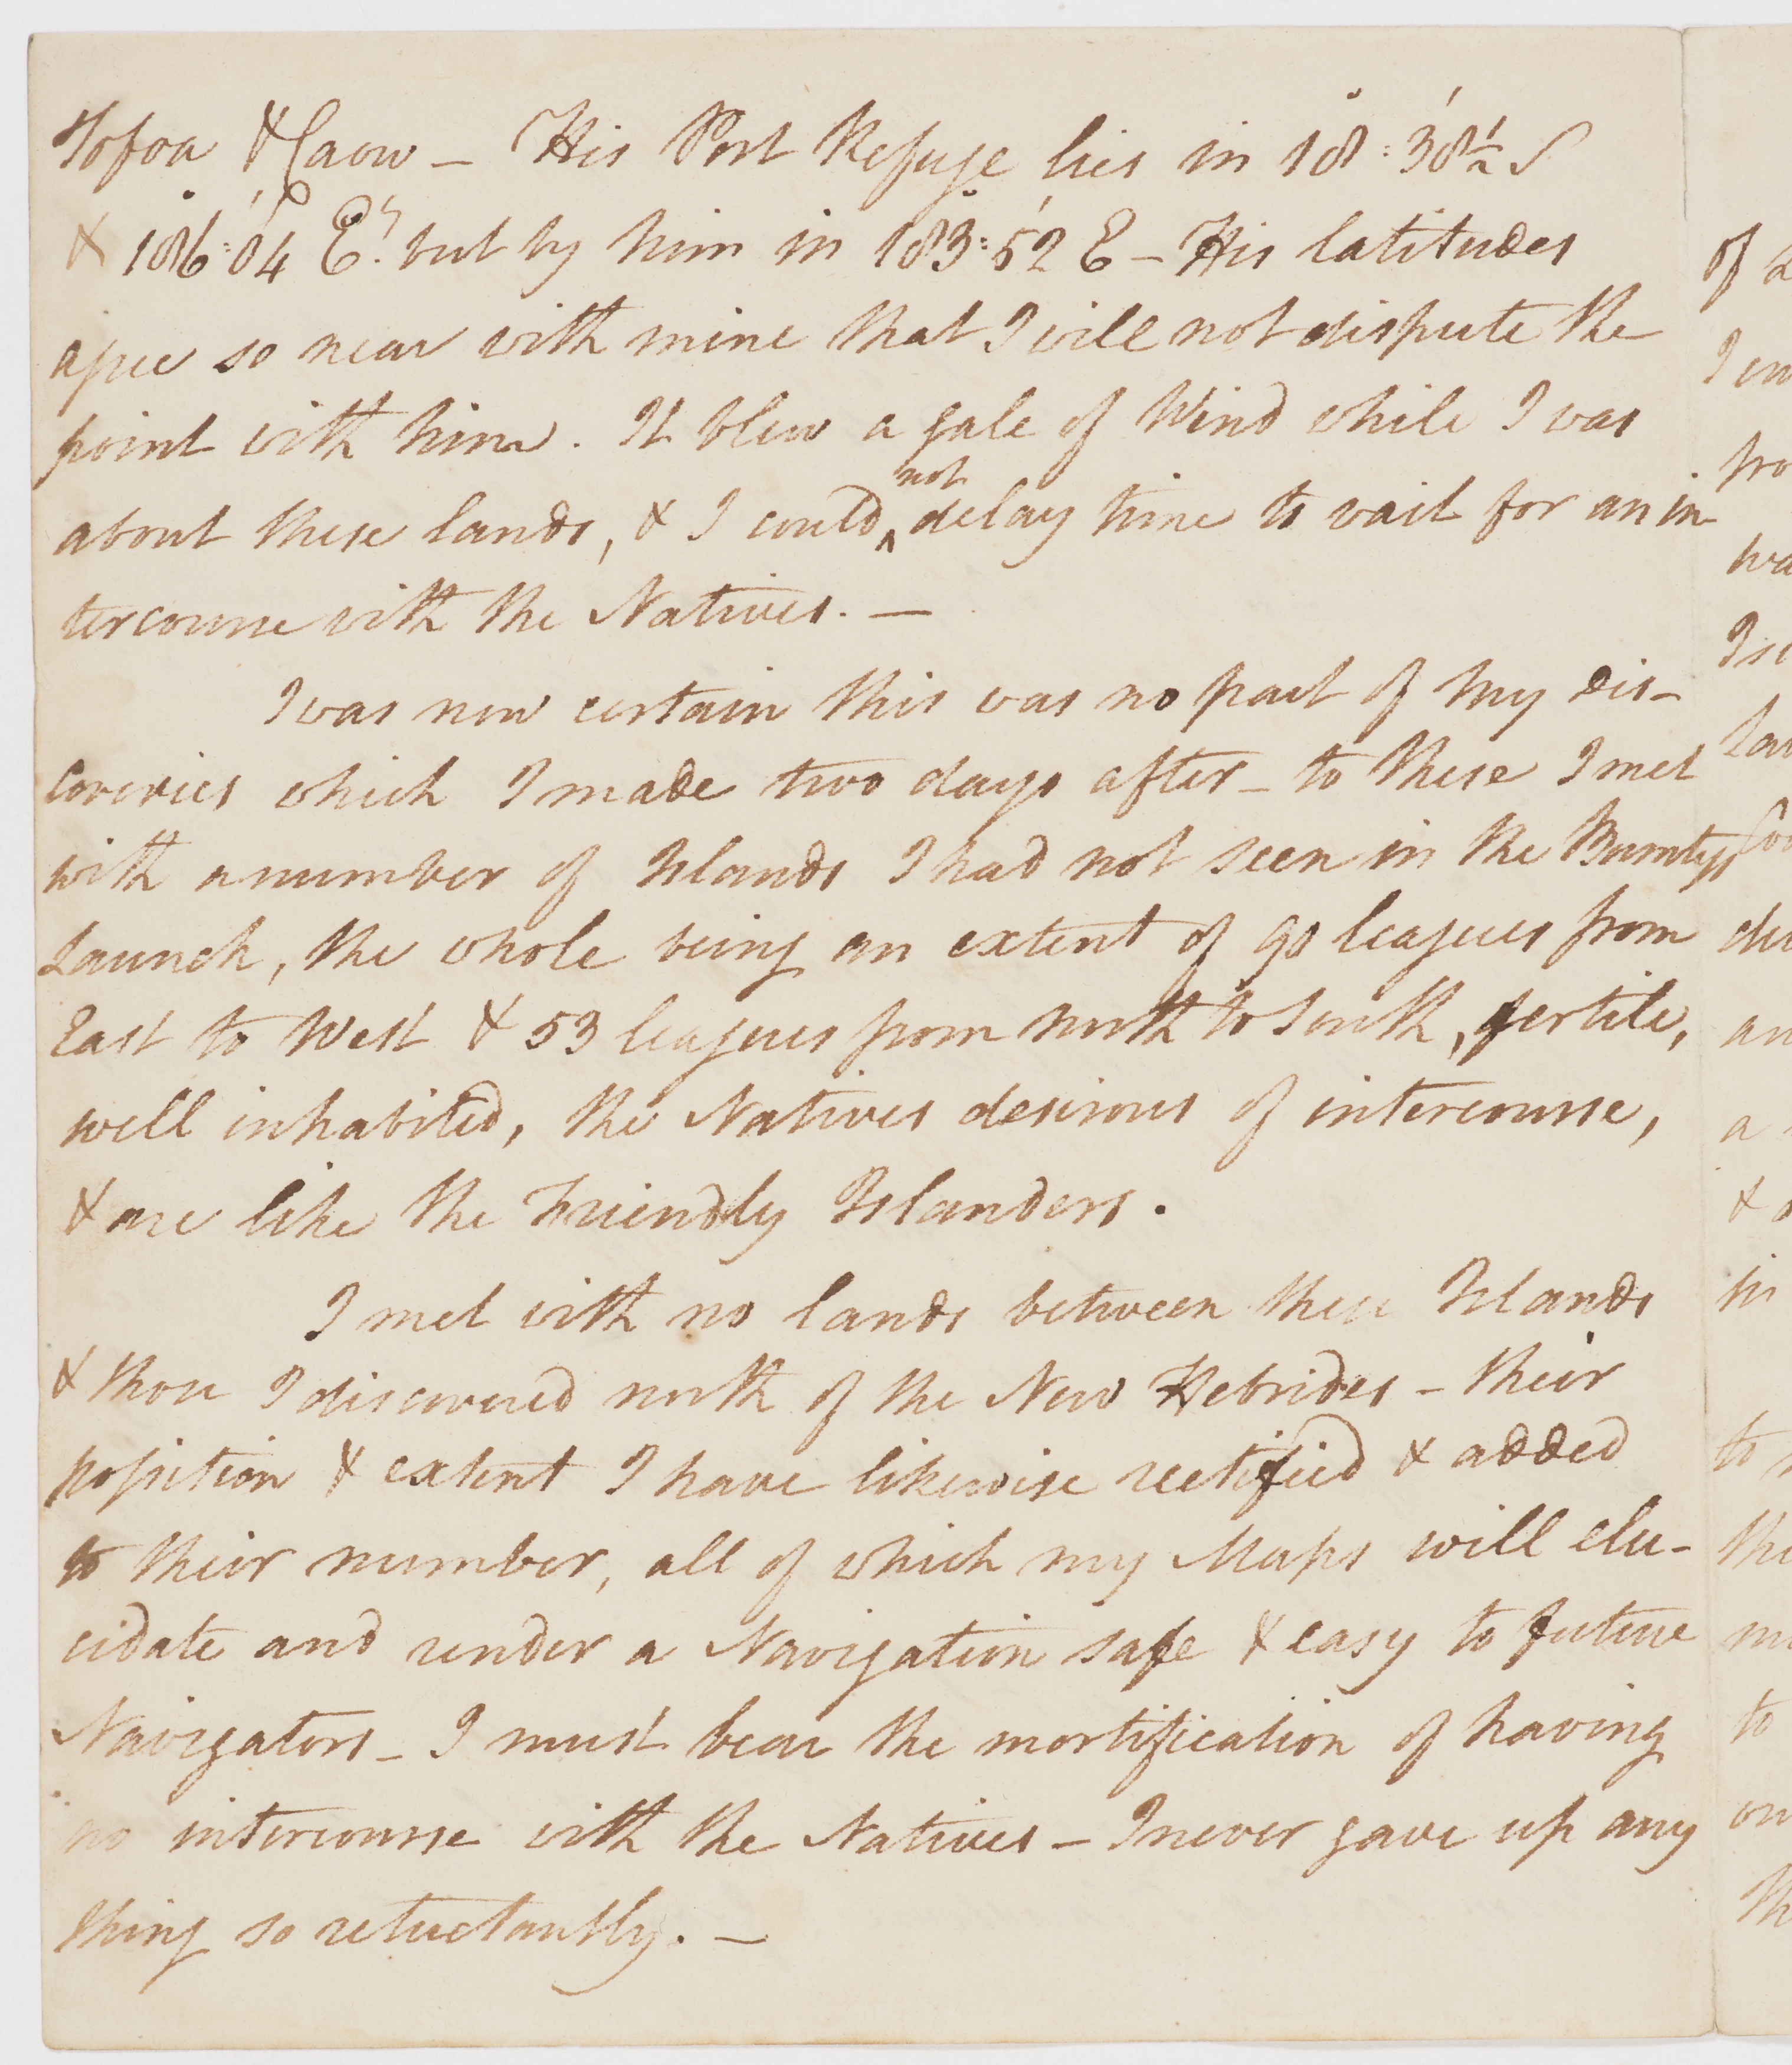 Tofoa & Caow – His Port Refuge lies in 18°:38'½ S
& 186°:04' Et. but by him in 183°:52' E – His latitudes
agree so near with mine that I will not dispute the
point with him. It blew a gale of Wind while I was
about these lands, & I could not delay time to wait for an in
tercourse with the Natives. —
I was now certain this was no part of my dis–
coveries which I made two days after – to these I met
with a number of Islands I had not seen in the Bountys
Launch, the whole being an extent of 90 leagues from
East to West & 53 leagues from north to South, fertile,
well inhabited, the Natives desirous of intercourse,
& are like the Friendly Islanders.
I met with no lands between these Islands
& those I discovered north of the New Hebrides – their
position & extent I have likewise rectified & added
to their number, all of which my Maps will elu–
cidate and render a Navigation safe & easy to future
Navigators – I must bear the mortification of having
no intercourse with the Natives – I never gave up any
thing so reluctantly. —